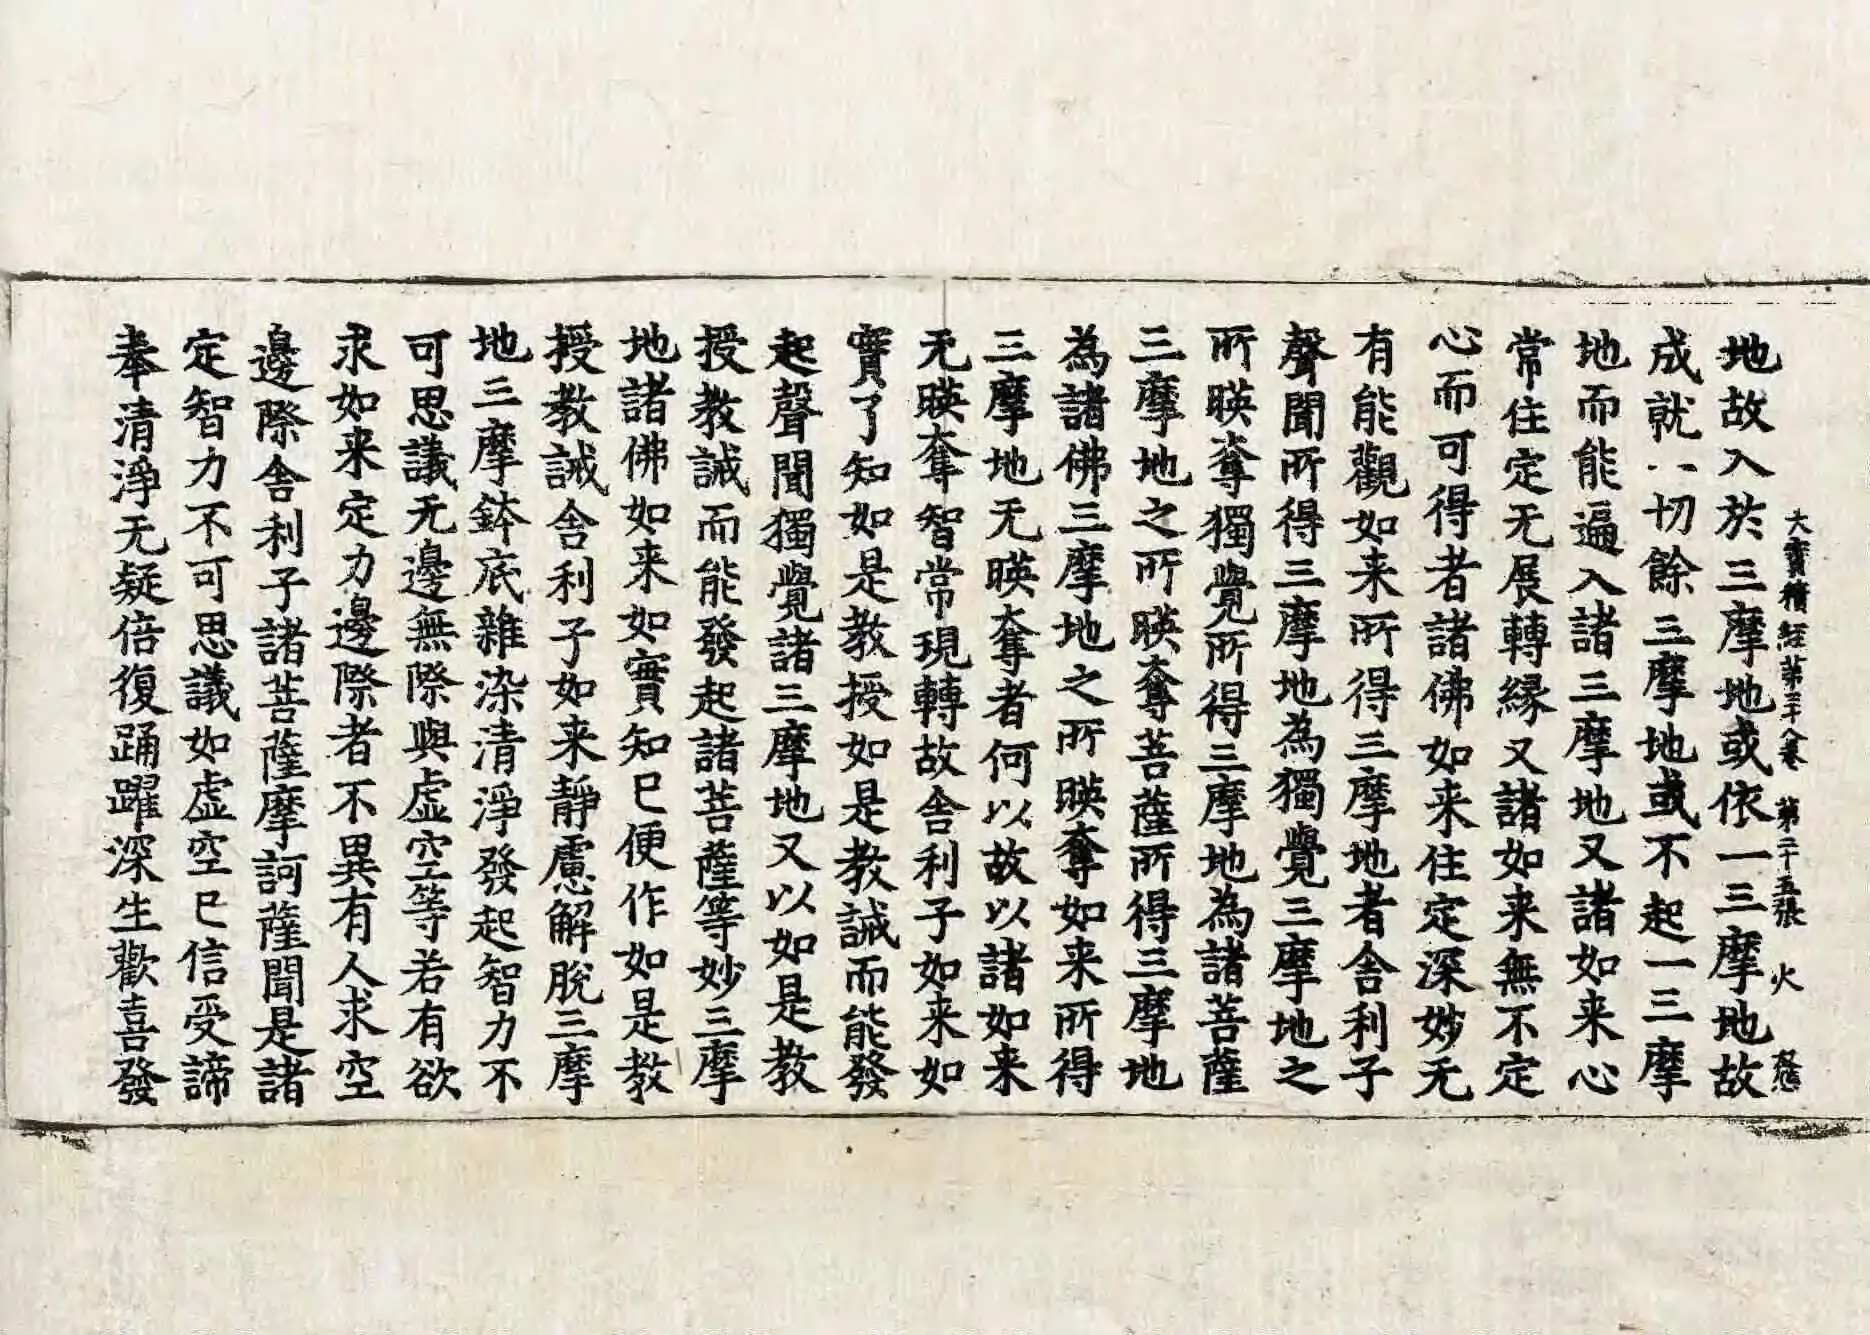 大寳積經第三十八卷 第二十五張 火
地故入於三摩地或依一三摩地故
成就一切餘三摩地或不起一三摩
地而能遍入諸三摩地又諸如来心
常住定无展轉緣又諸如来無不定
心而可得者諸佛如来住定深妙无
有能觀如来所得三摩地者舍利子
聲聞所得三摩地為獨覺三摩地之
所暎奪獨覺所得三摩地為諸菩薩
三摩地之所暎奪菩薩所得三摩地
為諸佛三摩地之所暎奪如来所得
三摩地无暎奪者何以故以諸如来
无暎奪智常現轉故舍利子如来如
實了知如是教授如是教誡而能發
起聲聞獨覺諸三摩地又以如是教
授教誡而能發起諸菩薩等妙三摩
地諸佛如来如實知已便作如是教
授教誡舍利子如来靜慮解脫三摩
地三摩鉢底雜染清淨發起智力不
可思議无邊無際與虛空等若有欲
求如来定力邊際者不異有人求空
邊際舍利子諸菩薩摩訶薩聞是諸
定智力不可思議如虛空已信受諦
奉清淨无疑倍復踊躍深生歡喜發